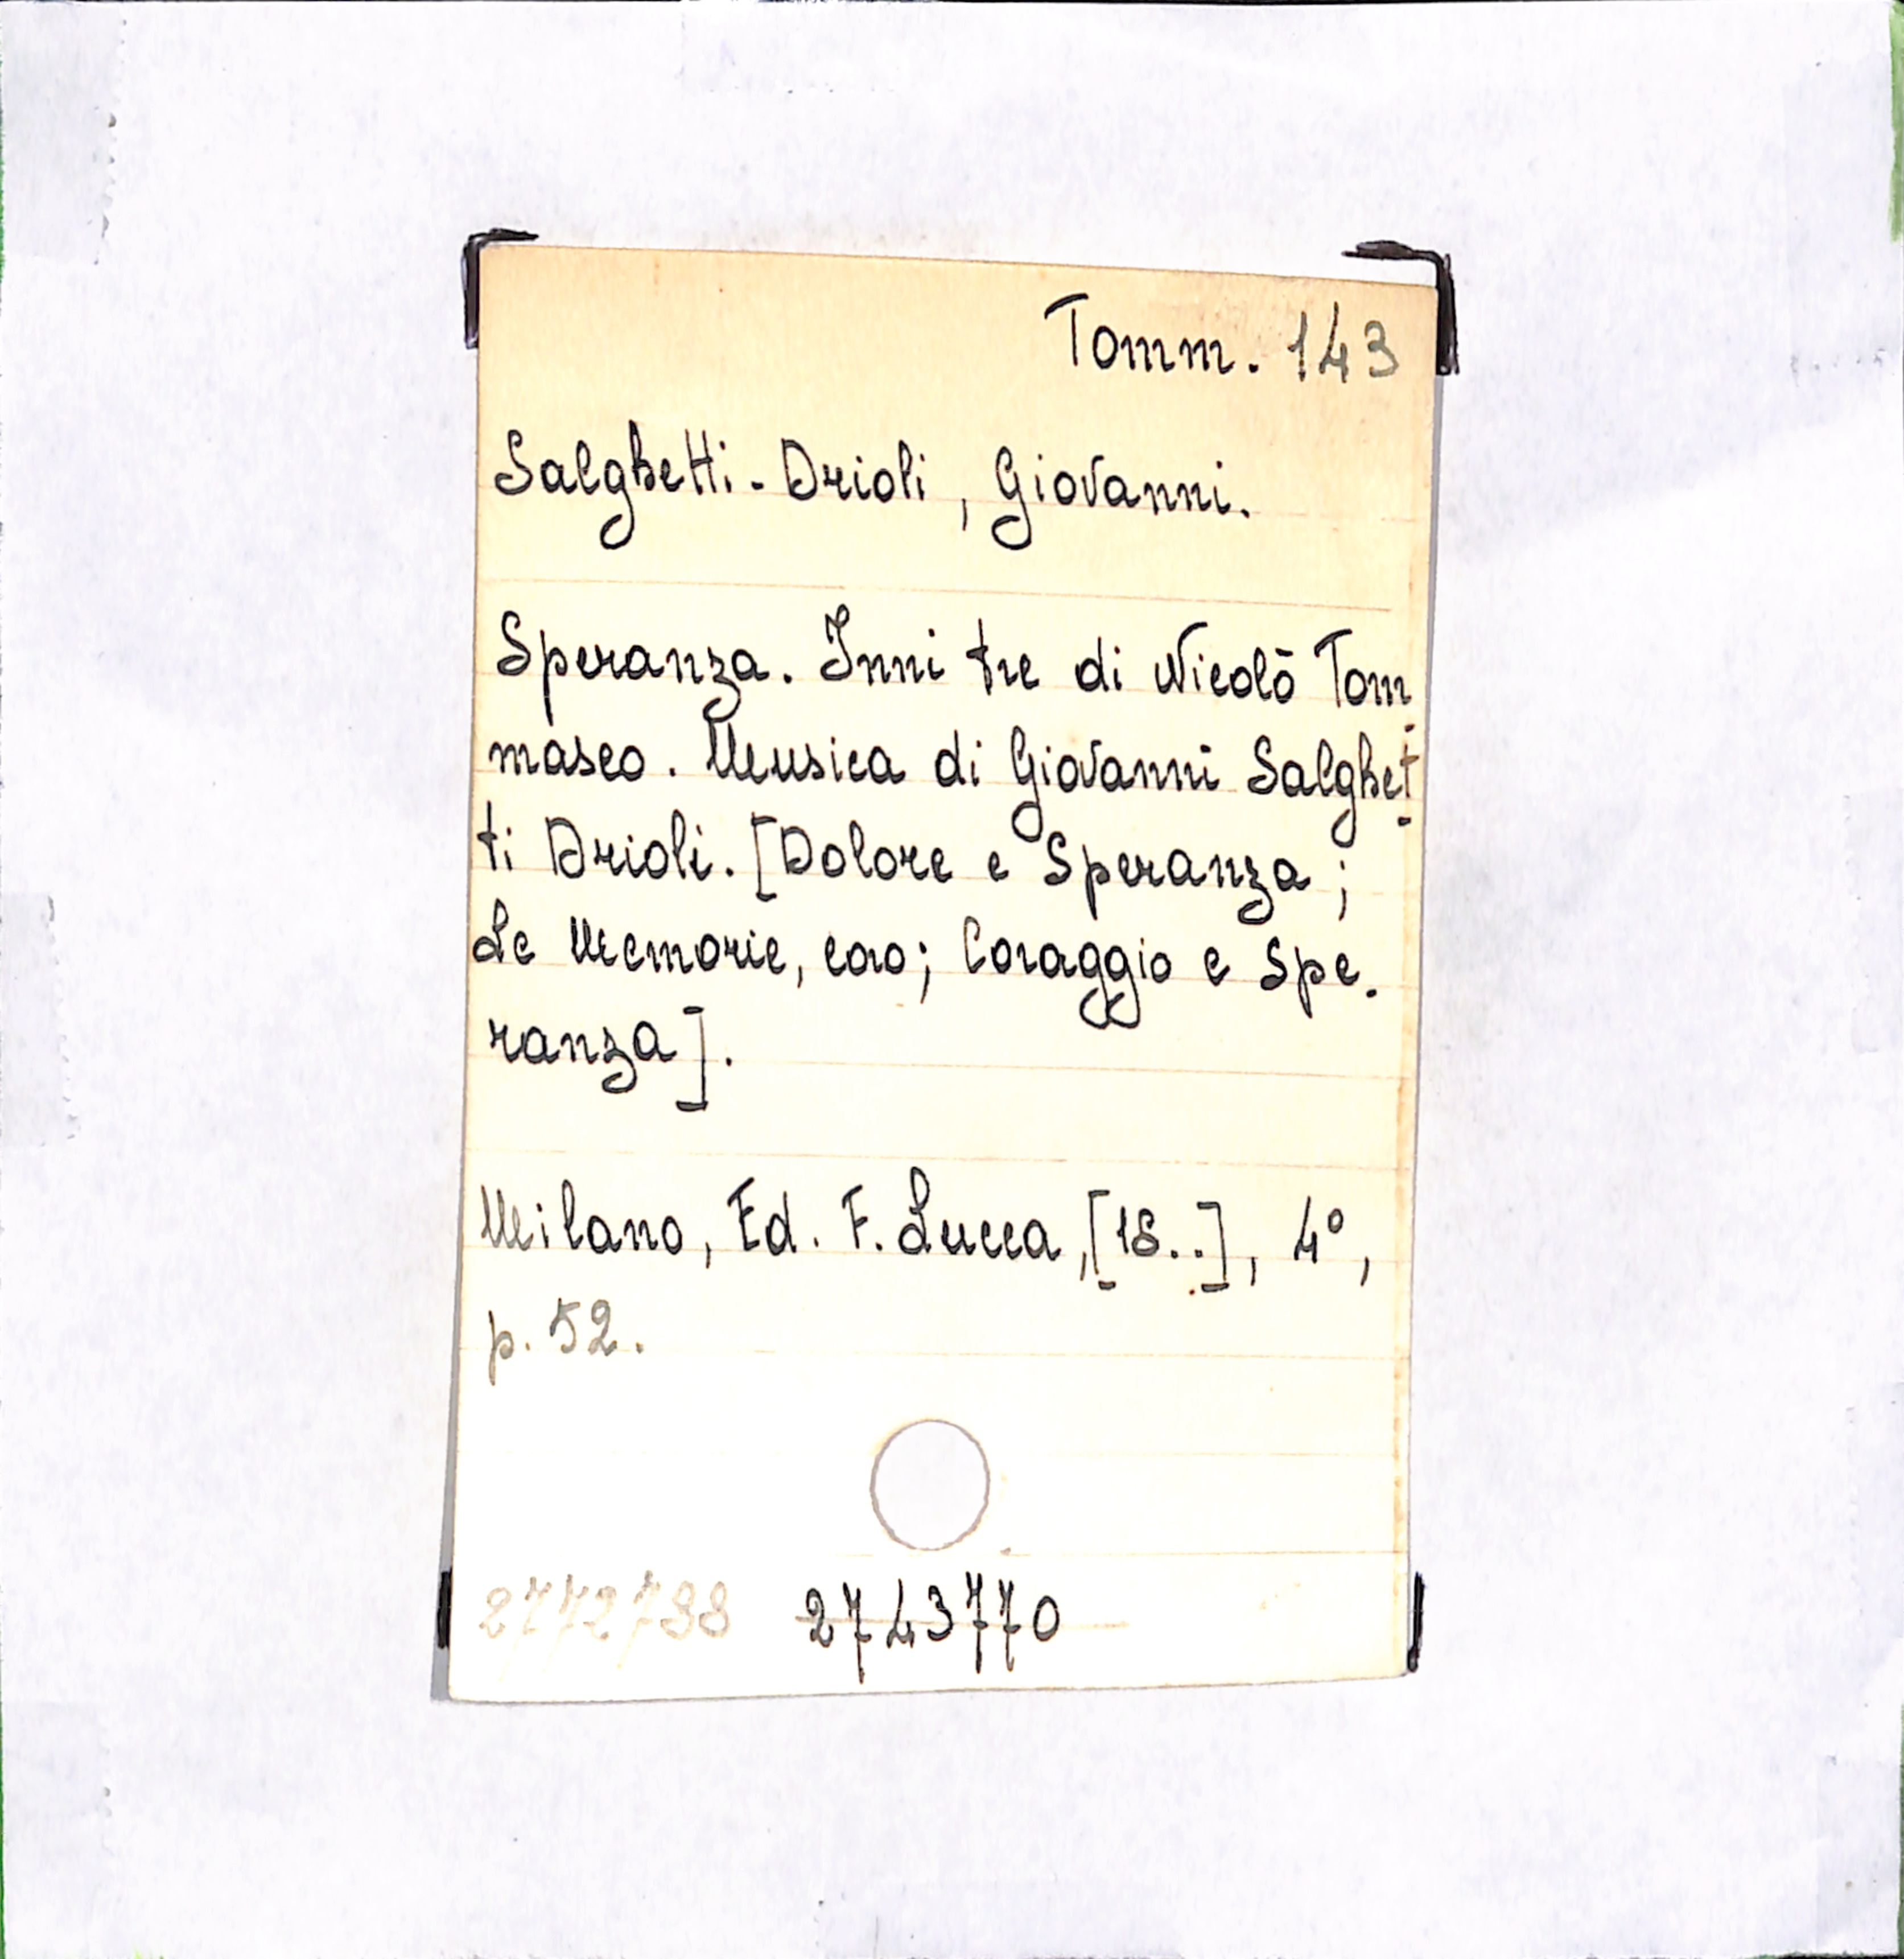 Tomm. 143
Salghetti-Drioli, Giovanni.
Speranza. Inni tre di Nicolò Tom
maseo. Musica di Giovanni Salghet-
ti Drioli. [Dolore e Speranza;
Le Memorie, coro; Coraggio e Spe-
ranza].
Milano, Ed. F. Lucca, [18..], 4°,
p. 52.
2743770